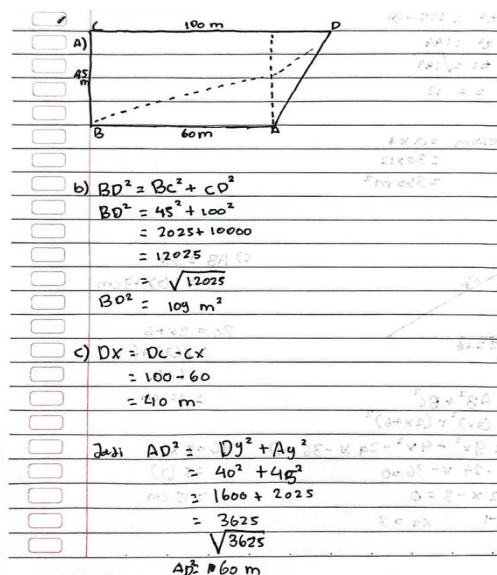 C 100 m D
A)
45
m
B 60m A
b) BD² = BC² + CD²
BD² = 45² + 100²
= 2025 + 10000
= 12025
= √12025
BD² = 109 m²
c) DX = DC - CX
= 100 - 60
= 40 m
Jadi AD² = Dy² + Ay²
= 40² + 45²
= 1600 + 2025
= 3625
√3625
AD² = 60 m